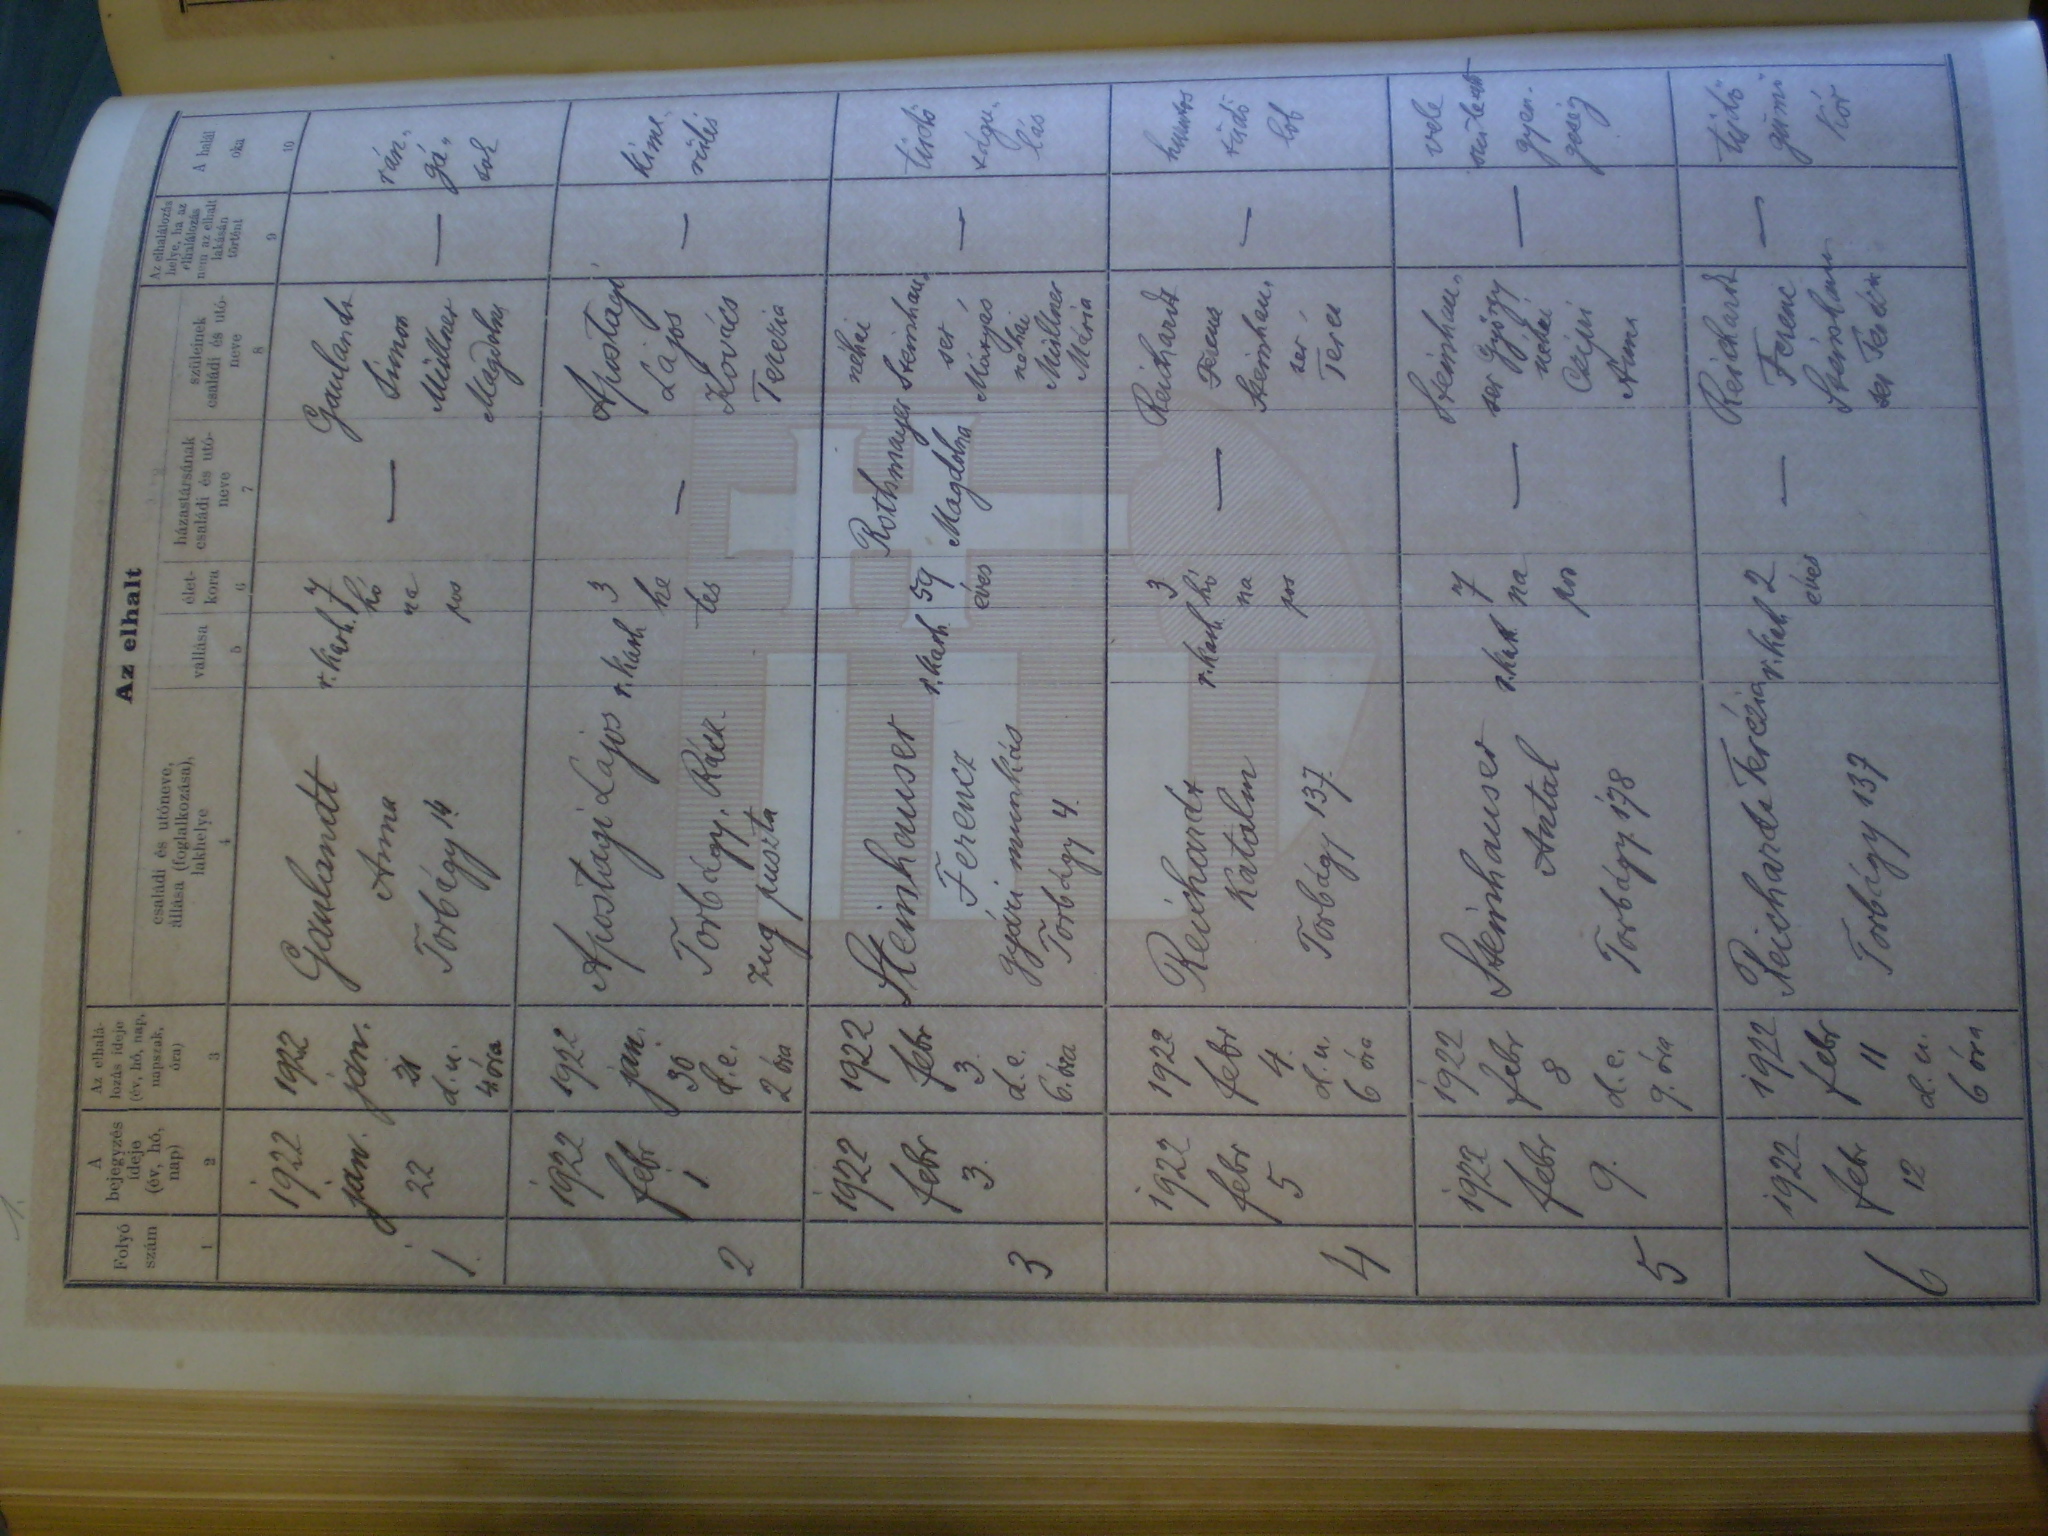 1.
Az elhalt
Folyó
szám
A
bejegyzés
ideje
(év, hó,
nap)
Az elhalá-
lozás ideje
(év, hó, nap,
napszak,
óra)
családi és utóneve,
állása (foglalkozása),
lakhelye
vallása
élet-
kora
házastársának
családi és utó-
neve
szüleinek
családi és utó-
neve
Az elhalálozás
helye, ha az
elhalálozás
nem az elhalt
lakásán
történt
A halál
oka
1 2 3 4 5 6 7 8 9 10
1.
1922
jan.
22
1922
jan.
21
d.u.
4 óra
Gaulandt
Anna
Torbágy 14.
r. kath.
7
hó
na
pos
—
Gaulandt
Simon
Müllner
Magdolna
—
rán-
gá-
sok
2
1922
febr
1
1922
jan.
30
d.e.
2 óra
Apostagi Lajos
Torbágy, Rácz-
zug puszta
r. kath
3
he
tes
—
Apostagi
Lajos
Kovács
Terézia
—
kime-
rülés
3
1922
febr
3.
1922
febr
3.
d.e.
6 óra
Steinhauser
Ferencz
gyári munkás
Torbágy 4.
r. kath.
59
éves
Rothmayer
Magdolna
néhai
Steinhau-
ser
Mátyás
néhai
Müllner
Mária
—
tüdő
lás
4
1922
febr
5
1922
febr
4.
d.u.
6 óra
Reichardt
Katalin
Torbágy 137.
r. kath.
3
hó
na
pos
—
Reichardt
Ferenc
Steinhau-
ser
Terez
—
hurutos
tüdő
lob
5
1922
febr
9.
1922
febr
8
d.e.
9. óra
Steinhauser
Antal
Torbágy 178
r. kath
7
na
pos
—
Steinhau-
ser György
néhai
Anna
—
vele
született
gyen-
geség
6
1922
febr
12
1922
febr
11
d.u.
6 óra
Reichardt Terézia
Torbágy 137
r. kath
2
éves
—
Reichardt
Ferenc
Steinhau
ser Teréz
—
tüdő
gümő
kór